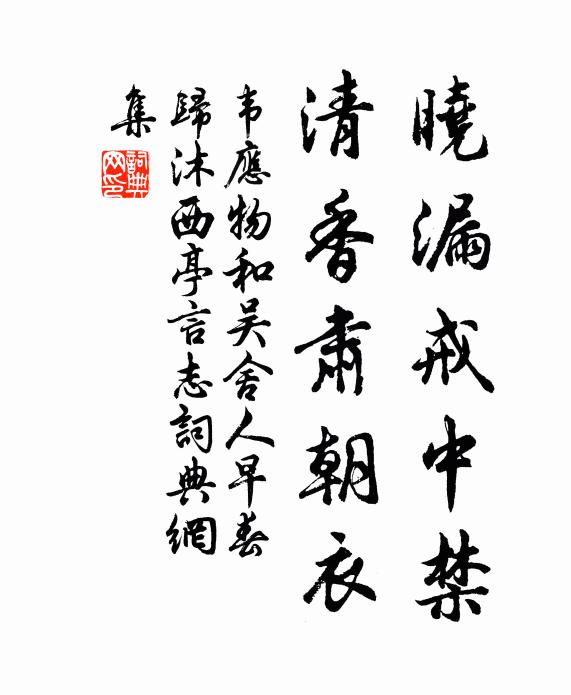 曉漏戒中禁
清香肅朝衣
韦應物和吴舍人早春
歸沐西亭言志詞典網
集
詞典
网印